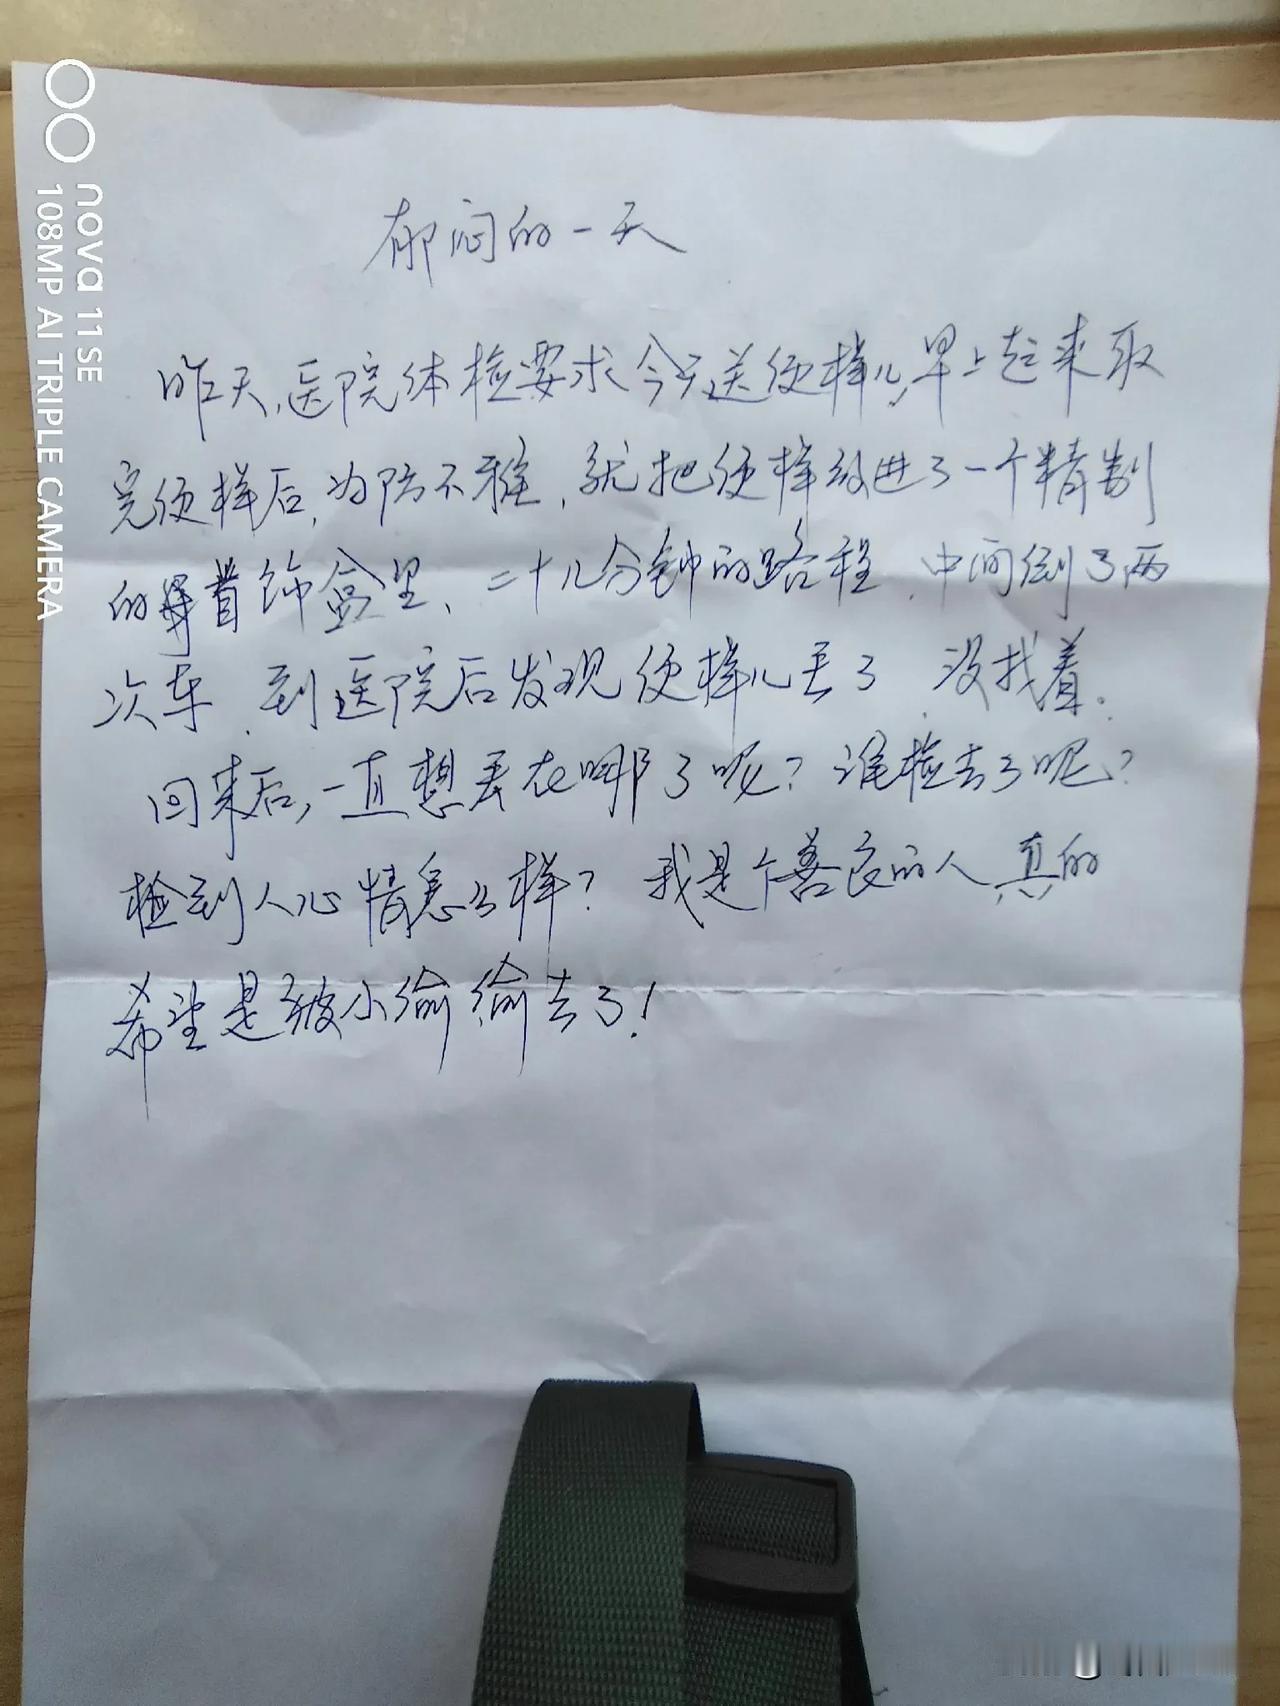 郁闷的一天
昨天,医院体检要求今天送便样儿,早上起来取
完便样后,为防不雅,就把便样放进了一个精制
的首饰盒里、二十几分钟的路程,中间倒了两
次车,到医院后发现便样儿丢了 没找着。
回来后,一直想丢在哪了呢?谁捡去了呢?
捡到人心情怎么样?我是个善良的人,真的
希望是被小偷偷去了!
nova 11 SE
108MP AI TRIPLE CAMERA